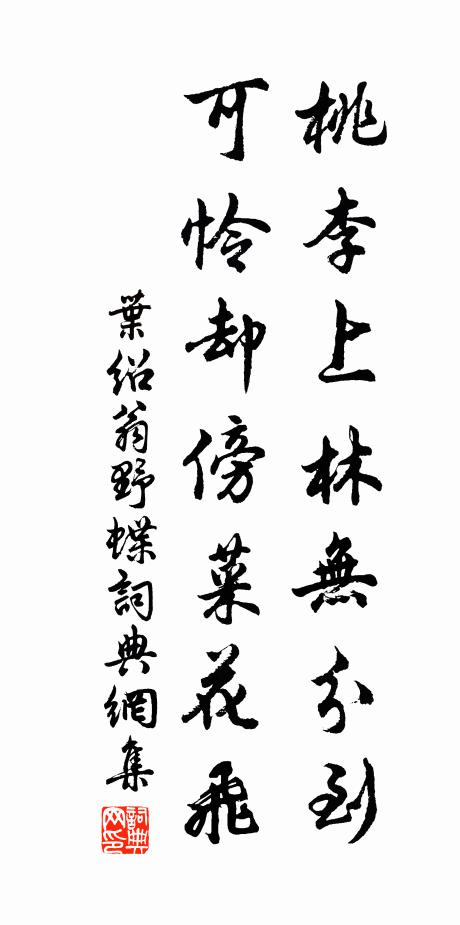 桃李上林無分到
可怜却傍菜花飛
葉紹翁野蝶詞典網集
詞典网印